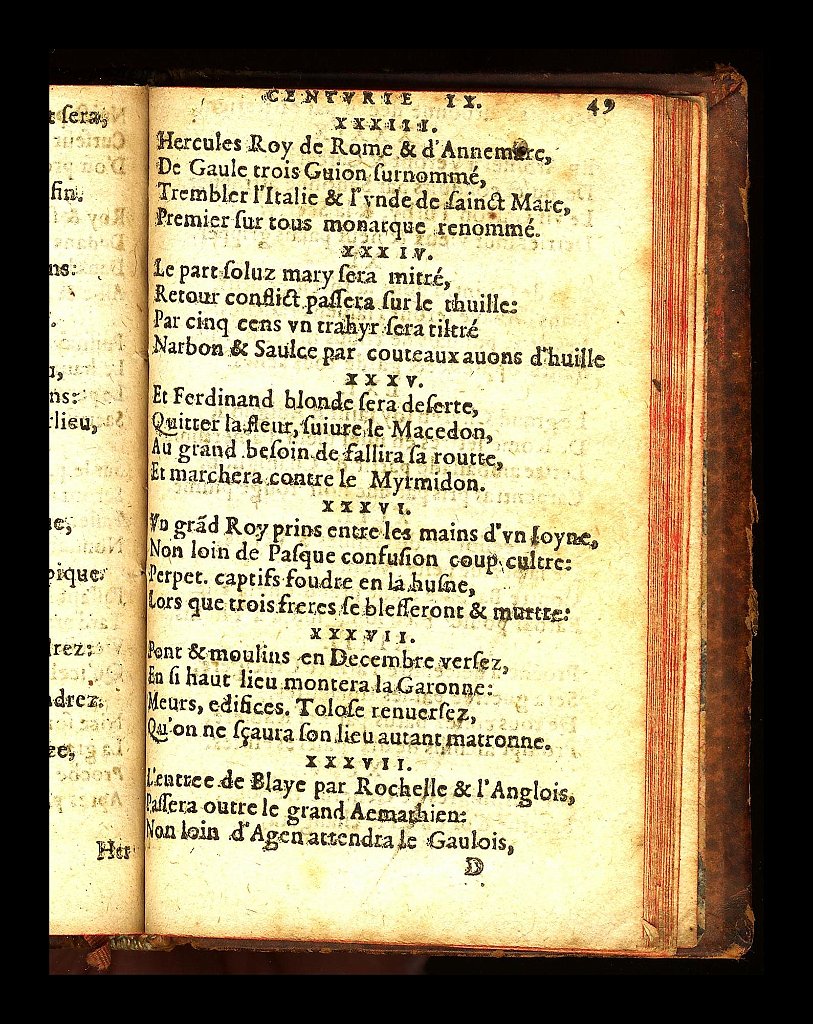 t ſera,
fin.
ns:
ns:
rlieu,
ue,
pique.
rez:
ndrez.
ze,
Her
CENTVRIE IX. 49
XXXIII.
Hercules Roy de Rome & d'Annemarc,
De Gaule trois Guion ſurnommé,
Trembler l'Italie & l'vnde de ſainct Marc,
Premier ſur tous monarque renommé.
XXXIV.
Le part ſoluz mary ſera mitré,
Retour conflict paſſera ſur le thuille:
Par cinq cens vn trahyr ſera tiltré
Narbon & Saulce par couteaux auons d'huille
XXXV.
Et Ferdinand blonde ſera deſerte,
Quitter la fleur, ſuiure le Macedon,
Au grand beſoin de fallira ſa routte,
Et marchera contre le Myrmidon.
XXXVI.
Vn grãd Roy prins entre les mains d'vn Ioyne,
Non loin de Paſque confuſion coup cultre:
Perpet. captifs foudre en la huſne,
Lors que trois freres ſe bleſſeront & murtre:
XXXVII.
Pont & moulins en Decembre verſez,
En ſi haut lieu montera la Garonne:
Meurs, edifices. Toloſe renuerſez,
Qu'on ne ſçaura ſon lieu autant matronne.
XXXVII.
L'entree de Blaye par Rochelle & l'Anglois,
Paſſera outre le grand Aemathien:
Non loin d'Agen attendra le Gaulois,
D